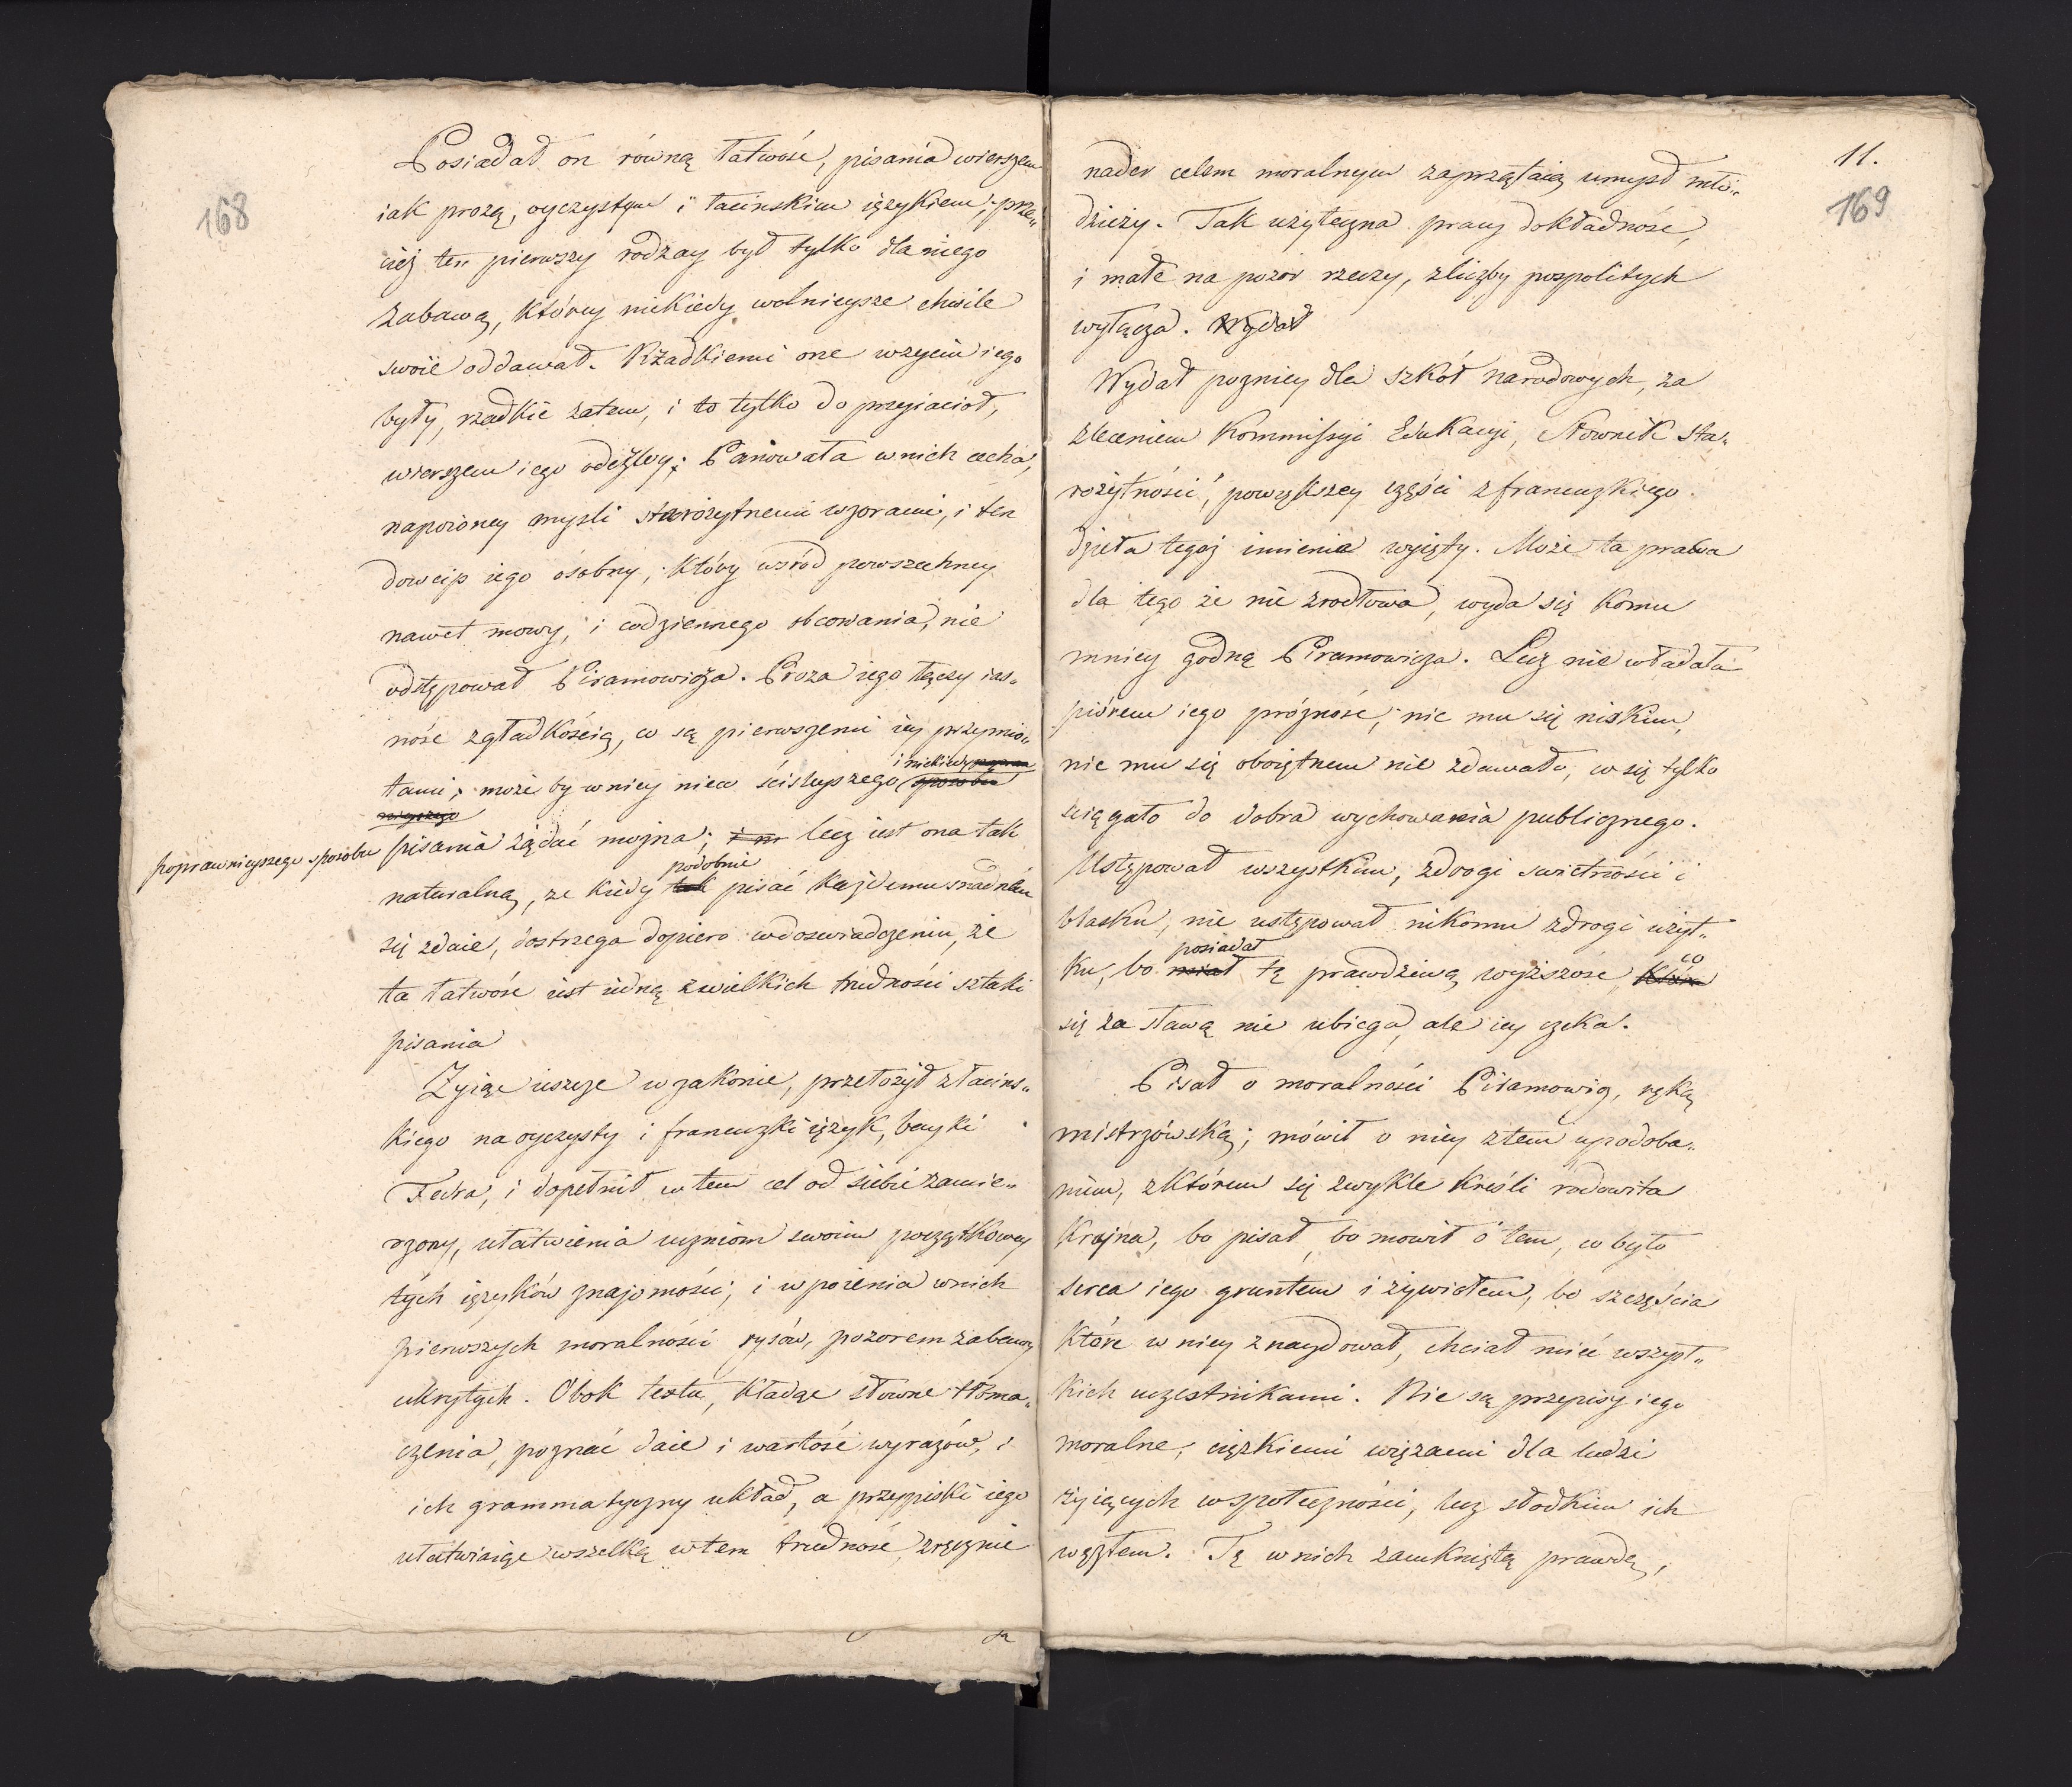 168
Posiadał on równą łatwość, pisania wierszem
iak prozą, oyczystym i łacinskim ięzykiem; prze„
cięż ten pierwszy rodzay był tylko dla niego
zabawą, którey niekiedy wolnieysze chwile
swoie oddawał. Rzadkiemi one wzyciu iego
były, rzadkie zatem, i to tylko do przyiaciół,
wierszem iego odezwy; Panowała w nich cecha,
napoioney mysli starożytnemi wzorami, i ten
dowcip iego osobny, który wsród powszechney
nawet mowy, i codziennego obcowania, nie
odstępował Piramowicza. Proza iego łączy ias„
ność zgładkością, co są pierwszemi iey przymio„
tami; może by w niey nieco ścisleyszego i niekiedy popraw sposobu
nieyszego
poprawnieyszego sposobu
pisania żądać można; i ni lecz iest ona tak
naturalną, ze kiedy tak podobnie pisać każdemu snadném
się zdaie, dostrzega dopiero wdoswiadczeniu, że
ta łatwość iest iedną zwielkich trudności sztuki
pisania
Zyiąc ieszcze w zakonie, przełożył złacins„
kiego na oyczysty i francuzki ięzyk, bayki
Fedra, i dopełnił w tem cel od siebie zamie„
rzony, ułatwienia uczniom swoim początkowey
tych ięzyków znajomości, i wpoienia wnich
pierwszych moralności rysów, pozorem zabawy
ukrytych. Obok textu, kładąc słowne tłoma„
czenia, poznać daie i wartość wyrazów, i
ich grammatyczny układ, a przypiski iego
ułatwiaiąc wszelką wtem trudność, zręcznie
11.
169
nader celem moralnym zaprzątaią umysł mło„
dzieży. Tak użyteczna pracy dokładność,
i małe na pozór rzeczy, zliczby pospolitych
wyłącza. Wydał
Wydał pozniey dla szkół narodowych, za
zleceniem Kommissyi Edukacyi, Słownik sta„
rożytności, powiększey części zfrancuzkiego
dzieła tegoż imienia wyięty. Może ta praca
dla tego że nie zrodłowa, wyda się komu
mniey godną Piramowicza. Lecz nie władała
piórem iego próżność, nic mu się niskim,
nic mu się oboiętnem nie zdawało, co się tylko
sciągało do dobra wychowania publicznego.
Ustępował wszystkim, zdrogi swietności i
blasku, nie ustępował nikomu zdrogi użyt„
ku, bo miał posiadał tę prawdziwą wyższość, która co
się za sławą nie ubiega, ale iey czeka.
Pisał o moralności Piramowicz, ręką
mistrzowską; mówił o niey ztem upodoba„
niem, zktórem się zwykle kreśli rodowita
kraina, bo pisał, bo mowił o tem, co było
serca iego gruntem i żywiołem, bo szczęścia
które w niey znaydował, chciał mieć wszyst„
kich uczestnikami. Nie są przepisy iego
moralne, ciężkiemi więzami dla ludzi
żyiących wspołeczności, lecz słodkim ich
węzłem. Tę w nich zamkniętą prawdę,